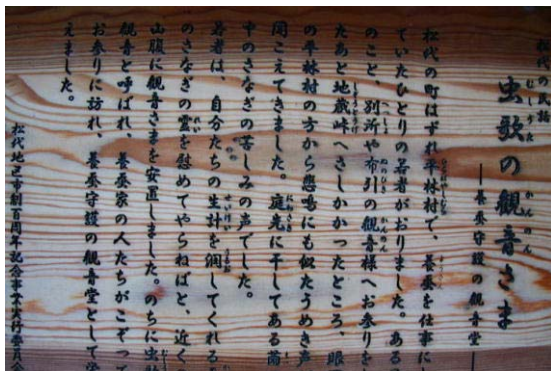 松代の民話
虫歌の観音さま
―養蚕守護の観音堂―
松代の町はずれ平林村で、養蚕を仕事にし
ていたひとりの若者がおりました。ある
のこと、別所や布引の観音様へお参りを
たあと地蔵峠へさしかかったところ、眼
の平林村の方から悲鳴にも似たうめき声
聞こえてきました。庭先に干してある繭
中のさなぎの苦しみの声でした。
若者は、自分たちの生計を潤してくれる
のさなぎの霊を慰めてやらねばと、近く
山腹に観音さまを安置しました。のちに虫
観音と呼ばれ、養蚕家の人たちがこぞって
お参りに訪れ、養蚕守護の観音堂として
えました。
松代地区市制百周年記念事業実行委員会